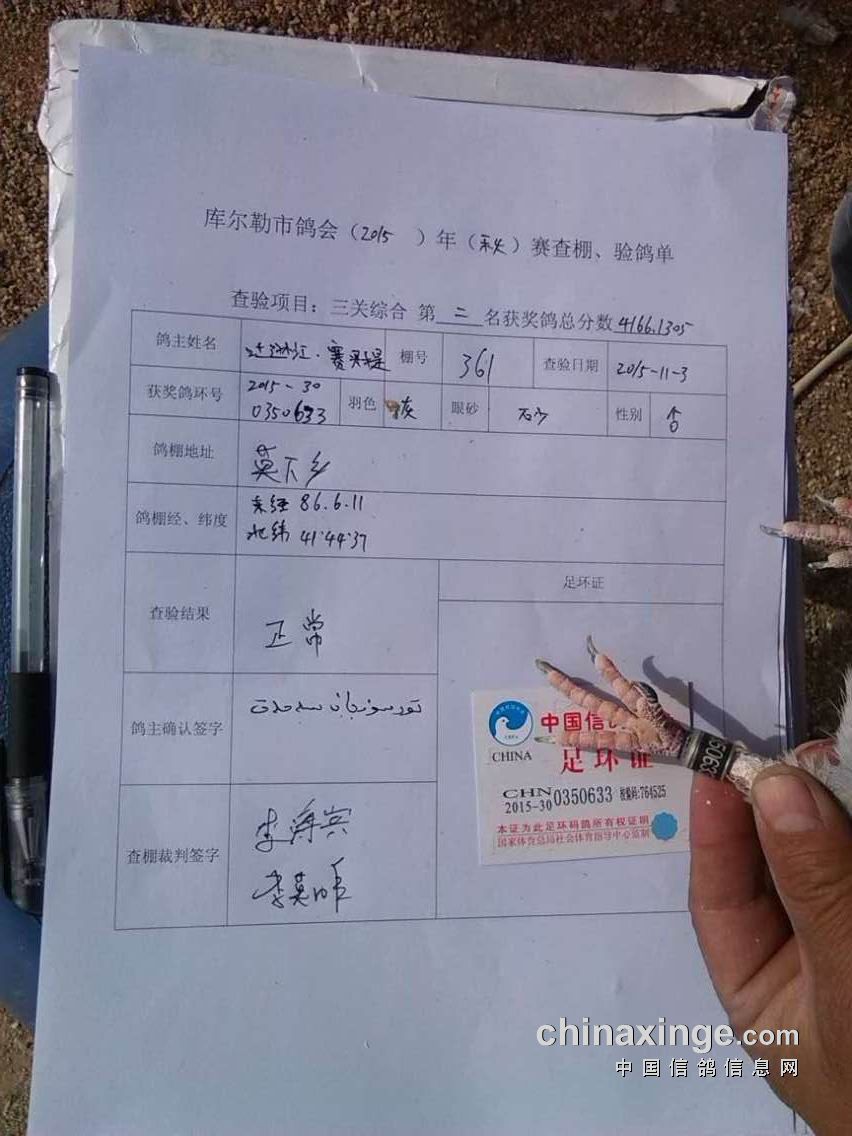 库尔勒市鸽会（2015 ）年（秋）赛查棚、验鸽单
查验项目：三关综合 第 二 名获奖鸽总分数 4166.1305
鸽主姓名 棚号 361 查验日期 2015-11-3
获奖鸽环号 2015-30 0350633 羽色 灰 眼砂 石少 性别 合
鸽棚地址 英下乡
鸽棚经、纬度 东经 86.6.11
北纬 41.44.37
查验结果 正常
足环证
鸽主确认签字
查棚裁判签字
中国信
CHINA 足环证
CHN
2015-30 0350633 校验码:764525
本证为此足环码鸽所有权证明
国家体育总局社会体育指导中心监制
chinaxinge.com
中国信鸽信息网